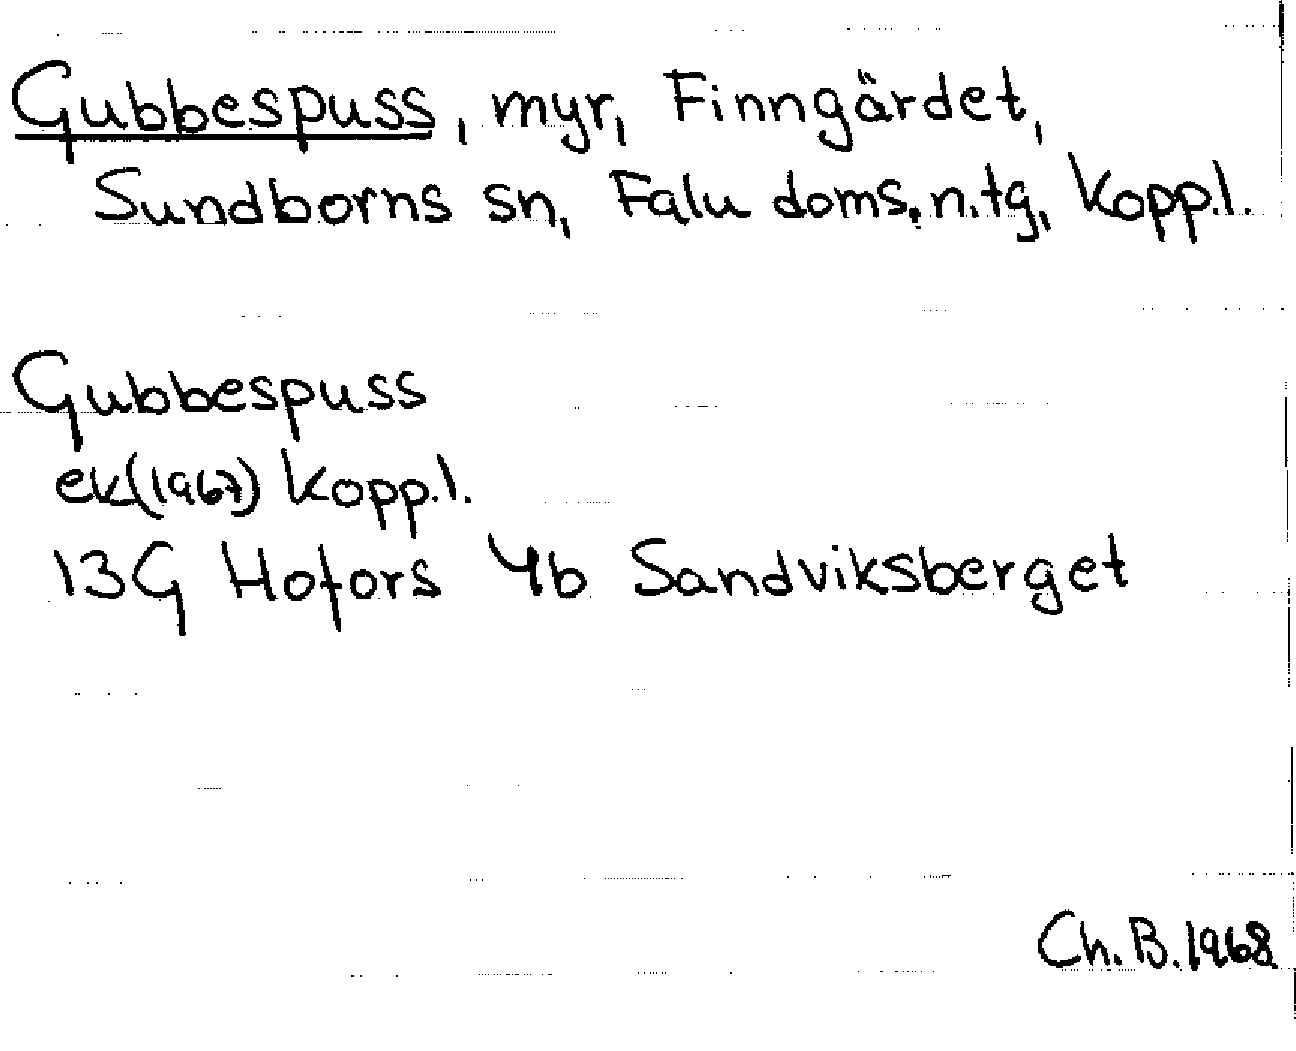 Gubbespuss, myr, Finngärdet,
Sundborns sn, Falu doms. n. tg, Kopp.l.
Gubbespuss
ek(1967) Kopp.l.
13G Hofors 4b Sandviksberget
Ch. B. 1968